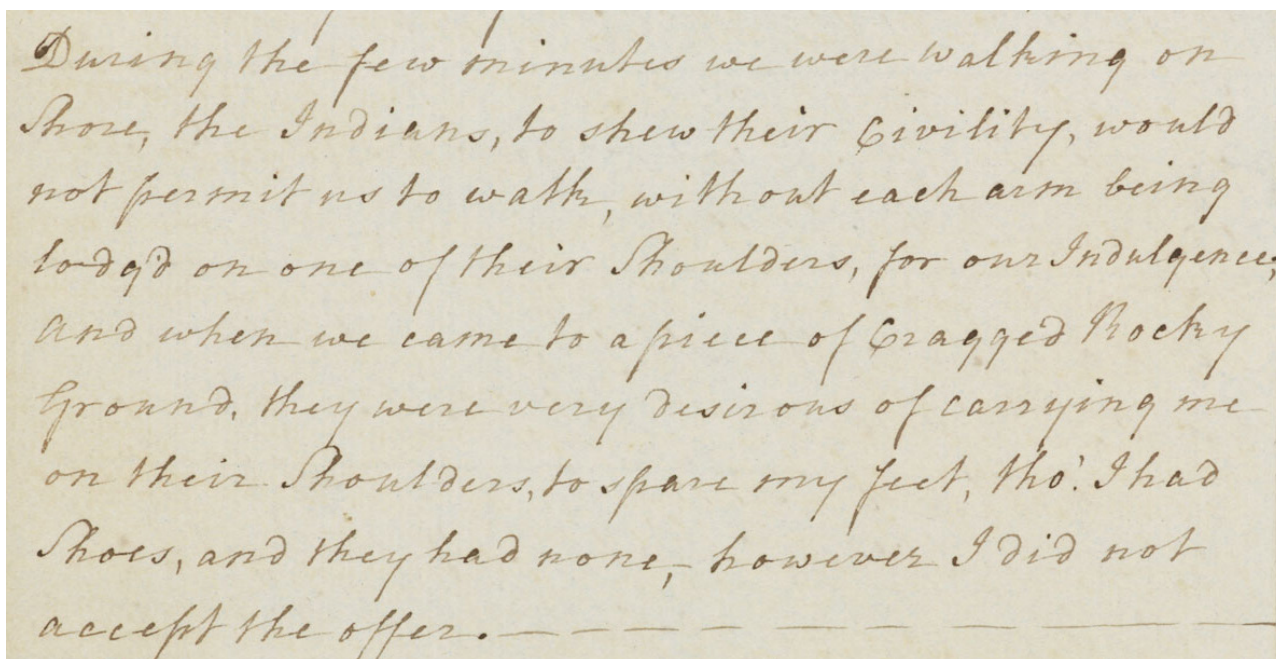 During the few minutes we were walking on
Shore, the Indians, to shew their Civility, would
not permit us to walk, without each arm being
lodg'd on one of their Shoulders, for our Indulgence;
and when we came to a piece of Cragged Rocky
Ground, they were very desirous of carrying me
on their Shoulders, to spare my feet, tho'. I had
Shoes, and they had none, however I did not
accept the offer. — — — — — — —